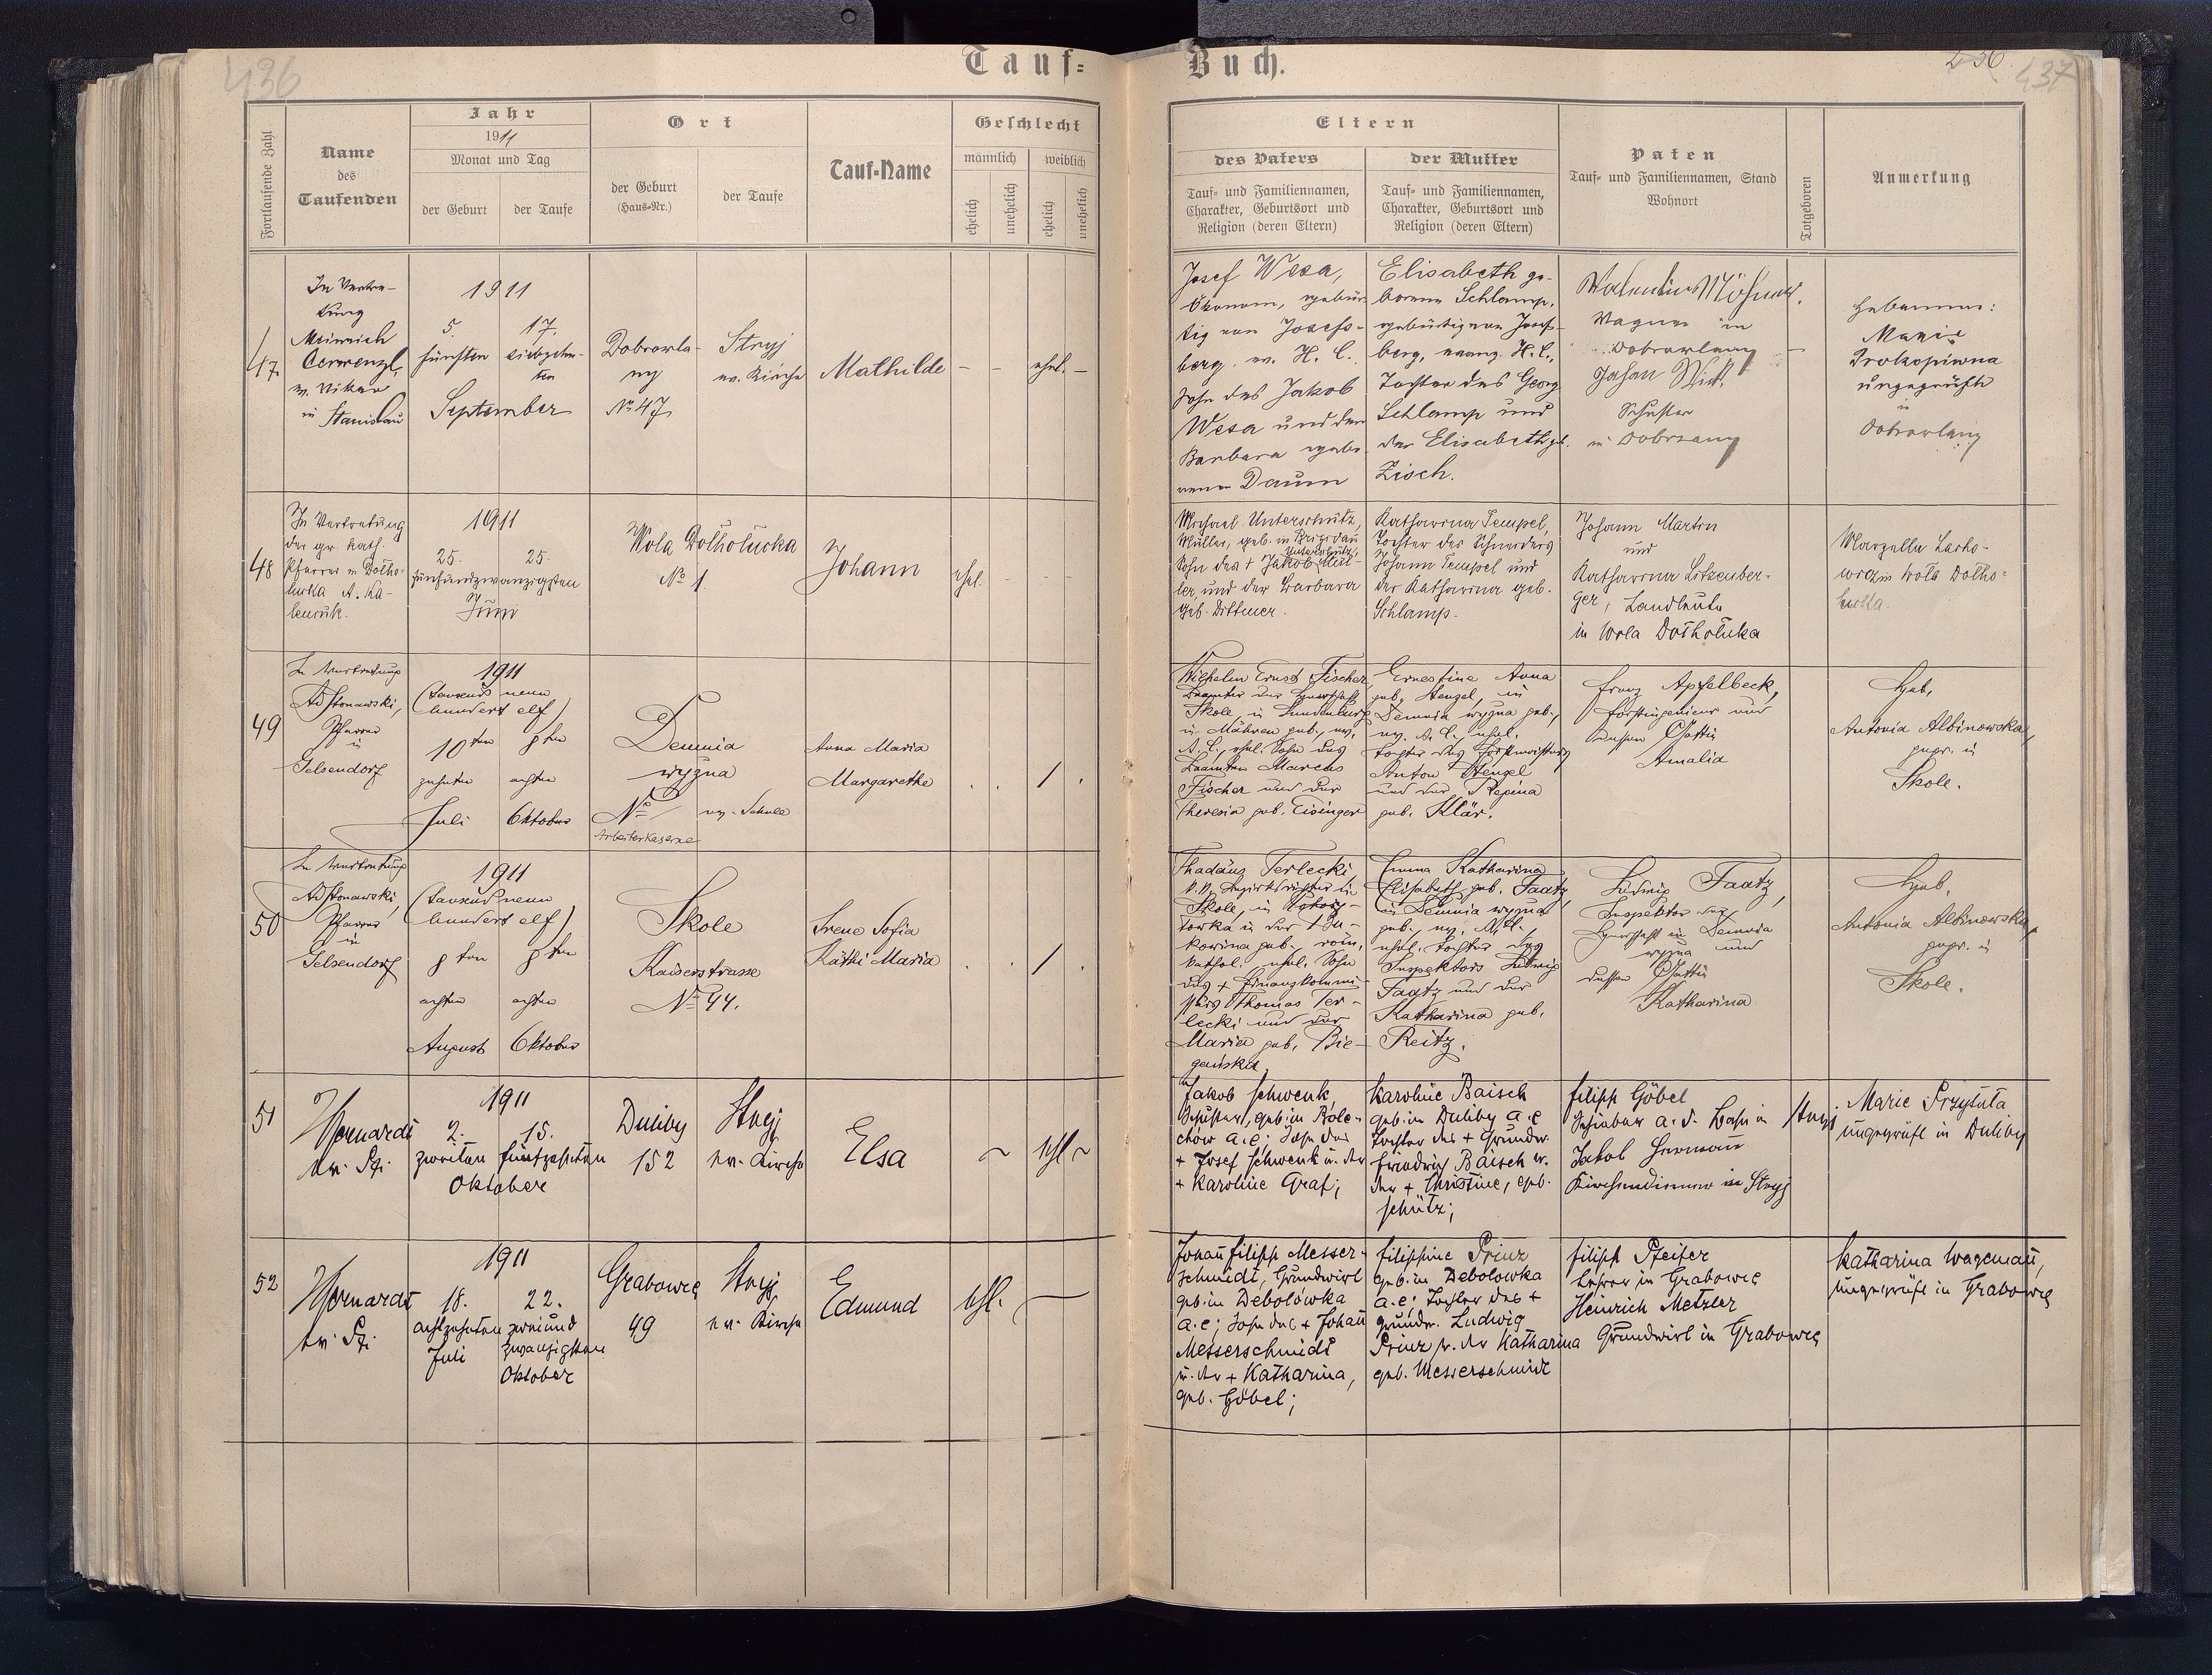 436
Tauf-
Buch.
437
Fortlaufende Zahl
Name
des
Taufenden
Jahr
1911
Monat und Tag
der Geburt
der Taufe
Ort
der Geburt
(Haus-Nr.)
der Taufe
Tauf-Name
Geschlecht
männlich
weiblich
ehelich
unehelich
ehelich
unehelich
Eltern
des Vaters
Tauf- und Familiennamen,
Charakter, Geburtsort und
Religion (deren Eltern)
der Mutter
Tauf- und Familiennamen,
Charakter, Geburtsort und
Religion (deren Eltern)
Paten
Tauf- und Familiennamen, Stand
Wohnort
Totgeboren
Anmerkung
47.
In Vertre-
tung
Meinrich
ev. Vikar
in Stanislau
1911
5. 17.
fünften siebzehn-
ten
September
Dobrowla-
ny
No 47
Stryj
ev. Kirche
Mathilde
– –
ehel. –
Josef Wesa,
Ökonom, gebür-
tig von Josefs-
berg, ev. H. C.,
Sohn des Jakob
Wesa und der
Barbara gebo-
renen Daum
Elisabeth ge-
borene Schlamp,
gebürtig von Josefs-
berg, evang. H. C.,
Tochter des Georg
Schlamp und
der Elisabeth geb.
Zisch.
Valentin
Wagner in
Dobrowlany
Johan
Schuster
in
–
Hebamme:
Marie
Prokopiwna
ungeprüfte
in
Dobrowlany
48
In Vertretung
der gr. kath.
Pfarrer in Dołho-
łucka A. Ka-
lenruk.
1911
25. 25.
fünfundzwanzigsten
Juni
Wola Dołhołucka
No 1.
Johann
ehel.
Michael Unterschütz,
Müller, geb. in Brigidau
Sohn des + Jakob Unterschütz, Mül-
ler, und der Barbara
geb. Dittmer.
Katharina Tempel,
Tochter des Schneiders
Johann Tempel und
der Katharina geb.
Schlamp.
Johann Martin
und
Katharina Litzenber-
ger, Landleute
in Wola Dołhołuka
Marzella Lacho-
wicz in Wola Dołho-
łucka.
49
In Vertretung
Ad Stonawski,
Pfarrer
in
Gelsendorf
1911
(tausend neun
hundert elf)
10ten 8ten
zehnten achten
Juli Oktober
Demnia
wyżna
No
Arbeiterkaserne
ev. Schule
Anna Maria
Margarethe
. . 1 .
Wilhelm Ernst Fischer,
Beamter der Herrschaft
Skole in Lundenburg
in Mähren geb., ev.
A. C., ehel. Sohn des
Beamten Marcus
Fischer und der
Theresia geb. Eisinger
Ernestine Anna
geb. Stengel, in
Demnia wyżna geb.,
ev. A. C., ehel.
Tochter des Forstmeisters
Anton Stengel
und der Regina
geb. Klär.
Franz Apfelbeck,
Forstingenieur und
dessen Gattin
Amalia
Heb.
Antonia Albinowska,
gepr. in
Skole.
50
In Vertretung
Ad Stonawski,
Pfarrer
in
Gelsendorf
1911
(tausend neun
hundert elf)
8ten 8ten
achten achten
August Oktober
Skole
Kaiserstrasse
No 44.
Irene Sofia
Käthi Maria
. . 1 .
Thadäus Terlecki,
k.k. Bezirksrichter in
Skole, in
in der Bu-
kowina geb., röm.
kathol. ehel. Sohn
des + Finanzkommi-
ssärs Thomas Ter-
lecki und der
Maria geb. Bie-
gańska
Emma Katharina
Elisabeth geb. Faatz,
in Demnia wyżna
geb., ev. A. C.,
ehel. Tochter des
Inspektors Ludwig
Faatz und der
Katharina geb.
Reitz.
Ludwig Faatz,
Inspektor der
Herrschaft in Demnia
wyżna und
dessen Gattin
Katharina
Heb.
Antonia Albinowska,
gepr. in
Skole.
51
1911
2. 15.
zweiten fünfzehnten
Oktober
Duliby
152
Stryj
ev. Kirche
Elsa
~ ehl ~
Jakob Schwenk,
Schuster, geb. in Bole-
chów a.c; Sohn des
+ Josef Schwenk u. der
+ Karoline Graf;
Karoline Baisch
geb. in Duliby a.c
Tochter des + Grundw.
Friedrich Baisch u.
der + Christine, geb.
Schütz;
Filipp Göbel
Schieber a. d. Bahn in Stryj
Jakob Hermann
Kirchendiener in Stryj
Marie Przytuła
ungeprüft in Duliby
52
1911
18. 22.
achtzehnten zweiund
zwanzigsten
Juli Oktober
Grabowce
49
Stryj
ev. Kirche
Edmund
ehl.
Johann Filipp Messer-
schmidt, Grundwirt
geb. in Debolówka
a.c; Sohn des + Johann
Messerschmidt
u. der + Katharina,
geb. Göbel;
Filippine Prinz
geb. in Debolowka
a.c; Tochter des +
Grundw. Ludwig
Prinz u. der Katharina
geb. Messerschmidt
Filipp Pfeifer
Lehrer in Grabowce
Heinrich Metzler
Grundwirt in Grabowce
Katharina Wagemann,
ungeprüft in Grabowce